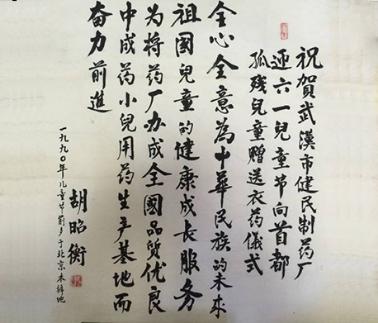 祝賀武漢市健民制药厂
迎六一兒童节向首都
孤残兒童贈送衣药儀式
全心全意為中华民族的未来
祖国兒童的健康成长服务
为将药厂办成全国品质优良
中成药小兒用药生产基地而
奋力前進
一九九〇年儿童节前夕于北京木樨地
胡昭衡